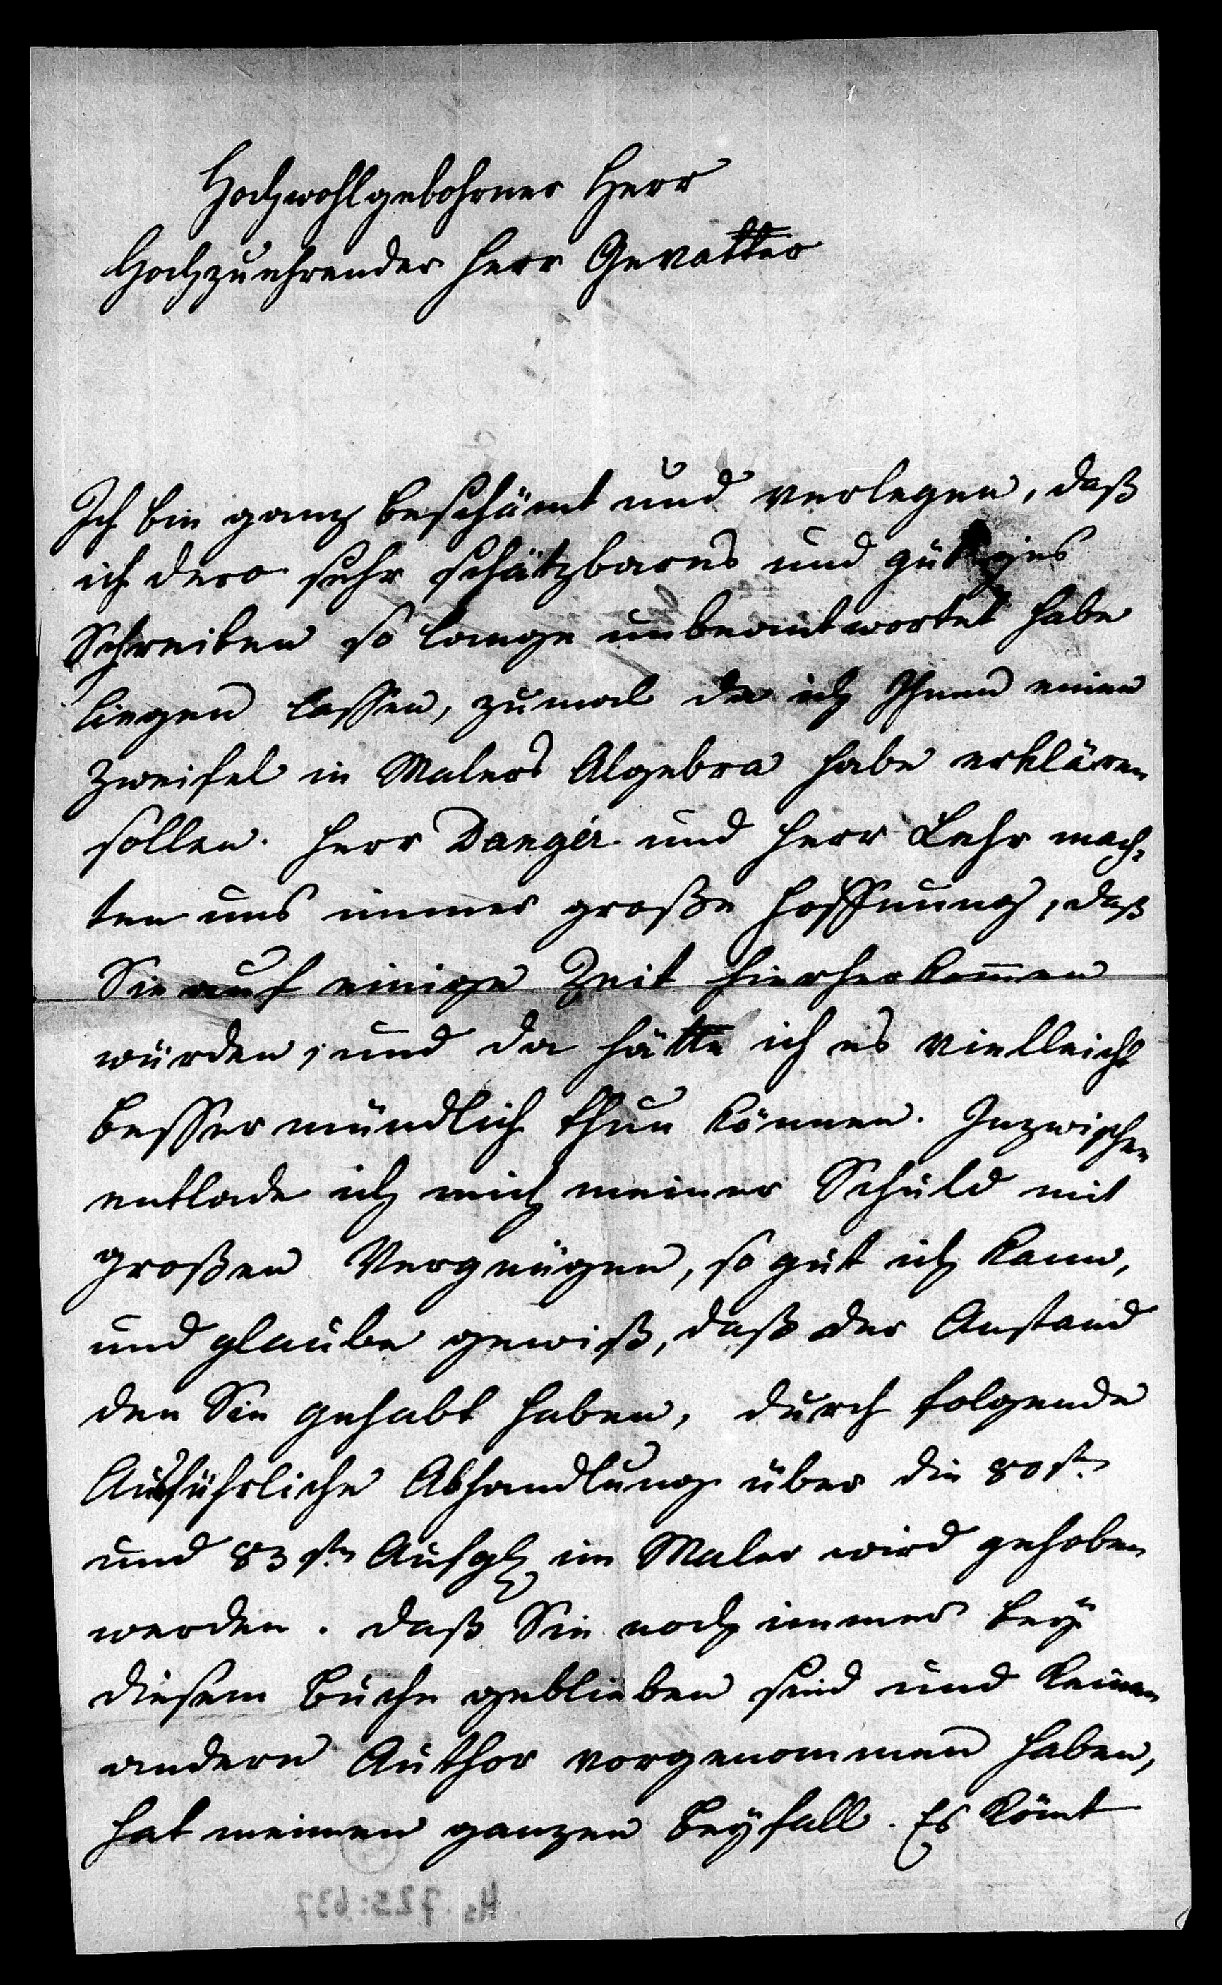 Hochwohlgebohrner Herr
Hochzuehrender Herr Gevatter
Ich bin ganz beschämt und verlegen, daß
ich dero sehr schätzbares und gütiges
Schreiben so lange unbeantwortet habe
liegen lassen, zumal da ich Ihnen einen
Zweifel in Malers Algebra habe erklären
sollen. Herr Danger und Herr Lehr mach¬
ten uns immer große Hoffnung, daß
Sie auf einige Zeit hierher kom̄en
würden, und da hätte ich es vielleicht
besser mündlich thun können. Inzwischen
entlade ich mich meiner Schuld mit
großen Vergnügen, so gut ich kann,
und glaube gewiß, daß der Anstand
den Sie gehabt haben, durch folgende
Ausführliche Abhandlung über die 80st.
und 83st. Aufg im Maler wird gehoben
werden. Daß Sie noch immer bey
diesem Buche geblieben sind und keinen
andern Author vorgenommen haben,
hat meinen ganzen Beyfall. Es kömt
Hs 725:637